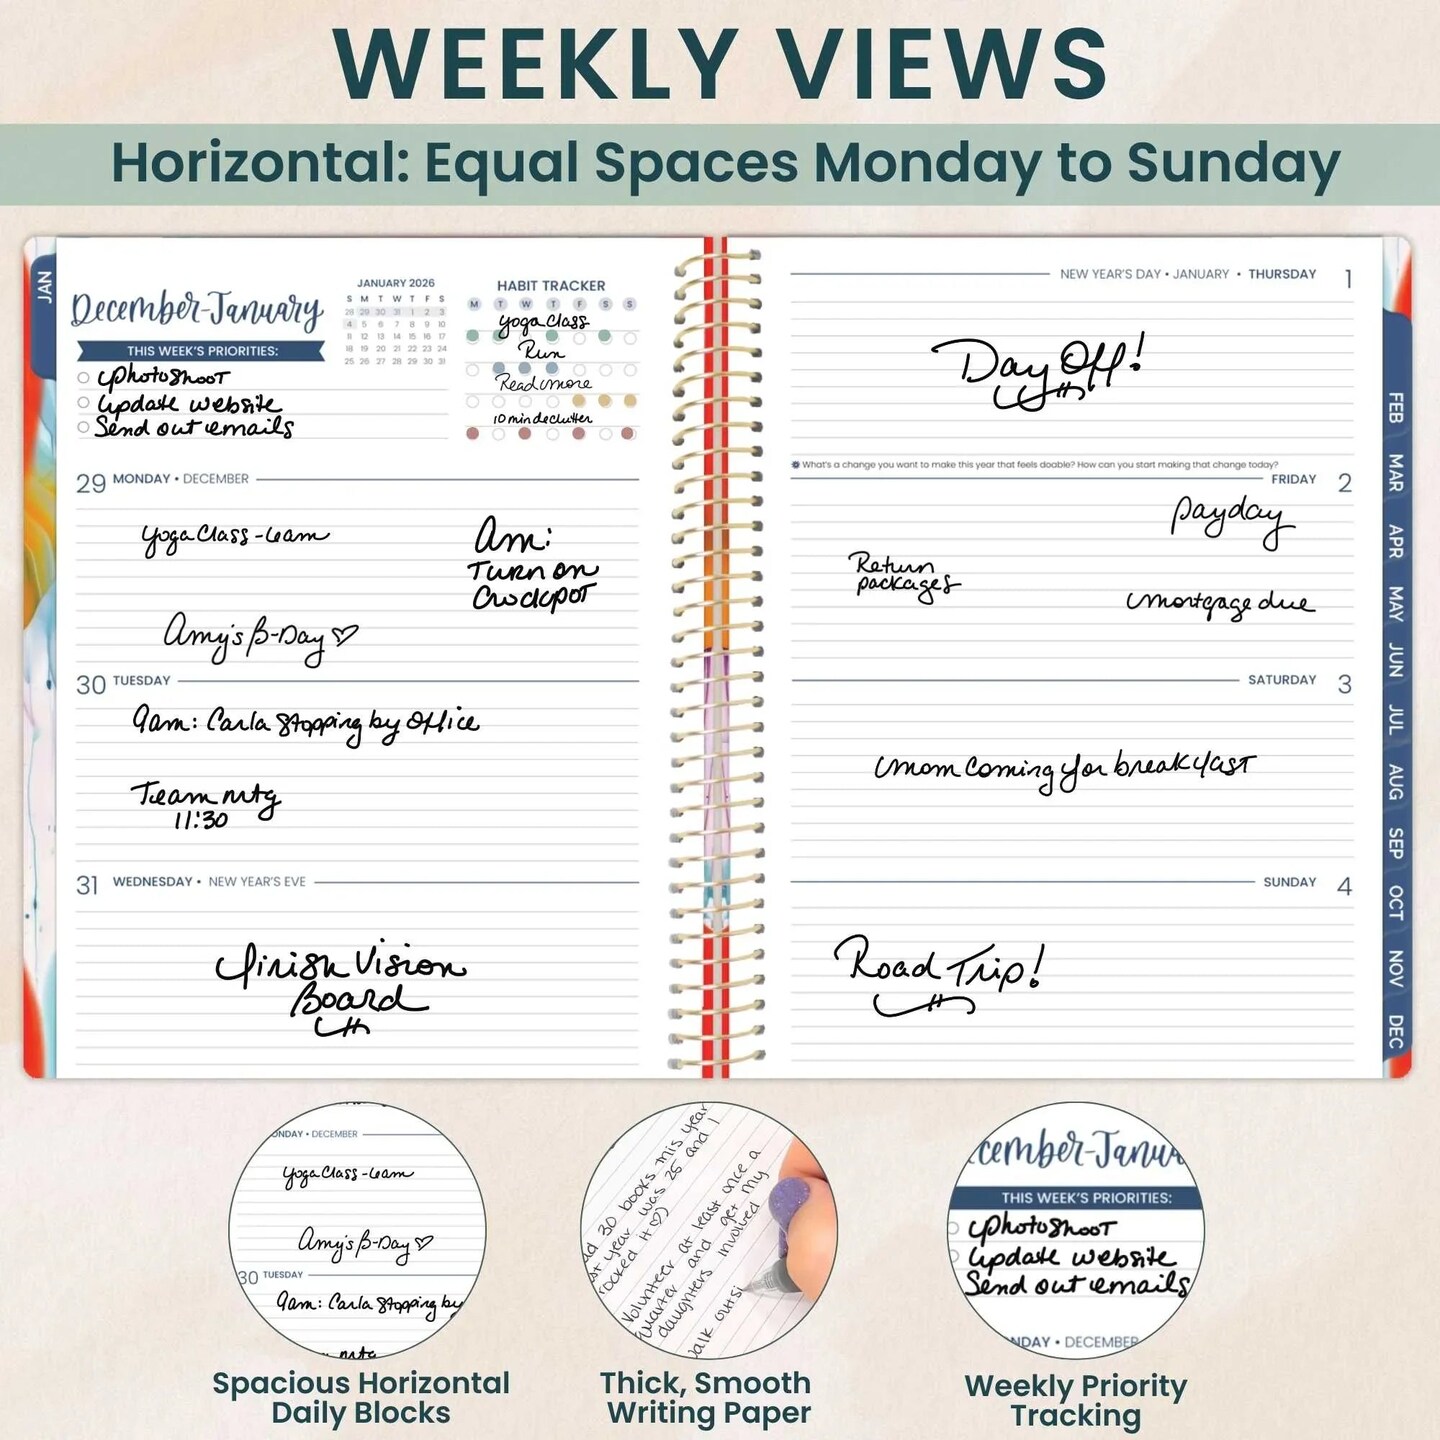 WEEKLY VIEWS
Horizontal: Equal Spaces Monday to Sunday
JAN
December-January
THIS WEEK'S PRIORITIES:
Photoshoot
Update website
Send out emails
JANUARY 2026
S M T W T F S
28 29 30 31 1 2 3
4 5 6 7 8 9 10
11 12 13 14 15 16 17
18 19 20 21 22 23 24
25 26 27 28 29 30 31
HABIT TRACKER
M T W T F S S
Yoga Class
Run
Read more
10 min declutter
29 MONDAY • DECEMBER
Yoga Class - 6am
Am:
Turn on
Crockpot
Amy's B-Day ♡
30 TUESDAY
9am: Carla stopping by office
Team mtg
11:30
31 WEDNESDAY • NEW YEAR'S EVE
Finish Vision
Board
NEW YEAR'S DAY • JANUARY • THURSDAY 1
Day Off!
What's a change you want to make this year that feels doable? How can you start making that change today?
FRIDAY 2
Payday
Return
packages
mortgage due
SATURDAY 3
Mom coming for breakfast
SUNDAY 4
Road Trip!
FEB
MAR
APR
MAY
JUN
JUL
AUG
SEP
OCT
NOV
DEC
ONDAY • DECEMBER
Yoga Class - 6am
Amy's B-Day ♡
30 TUESDAY
9am: Carla stopping by
mtg
Spacious Horizontal
Daily Blocks
ad 30 books this year
st year was 25 and I
rocked it ♡)
Volunteer at least once a
quarter and get my
daughters involved
walk outsi
Thick, Smooth
Writing Paper
cember-Janua
THIS WEEK'S PRIORITIES:
Photoshoot
Update website
Send out emails
NDAY • DECEMBER
Weekly Priority
Tracking